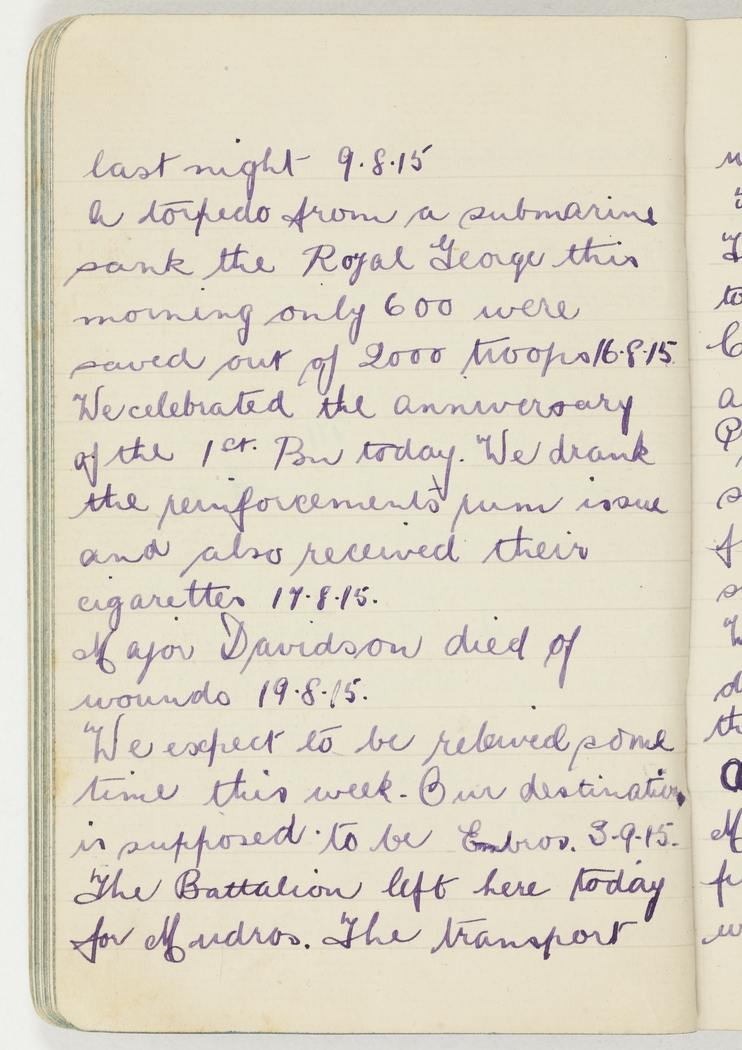 last night 9.8.15
A torpedo from a submarine
sank the Royal George this
morning only 600 were
saved out of 2000 troops 16.8.15
We celebrated the anniversary
of the 1st. Bn today. We drank
the reinforcements' rum issue
and also received their
cigarettes 17.8.15.
Major Davidson died of
wounds 19.8.15.
We expect to be releived some
time this week. Our destination
is supposed to be Embros. 3-9-15.
The Battalion left here today
for Mudros. The transport